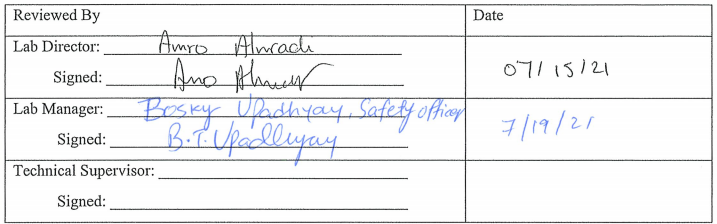 Reviewed By Date
Lab Director: Amro Almradi
Signed: 07/15/21
Lab Manager: Bosky Upadhyay, Safety officer
Signed: B.T. Upadhyay 7/19/21
Technical Supervisor:
Signed: